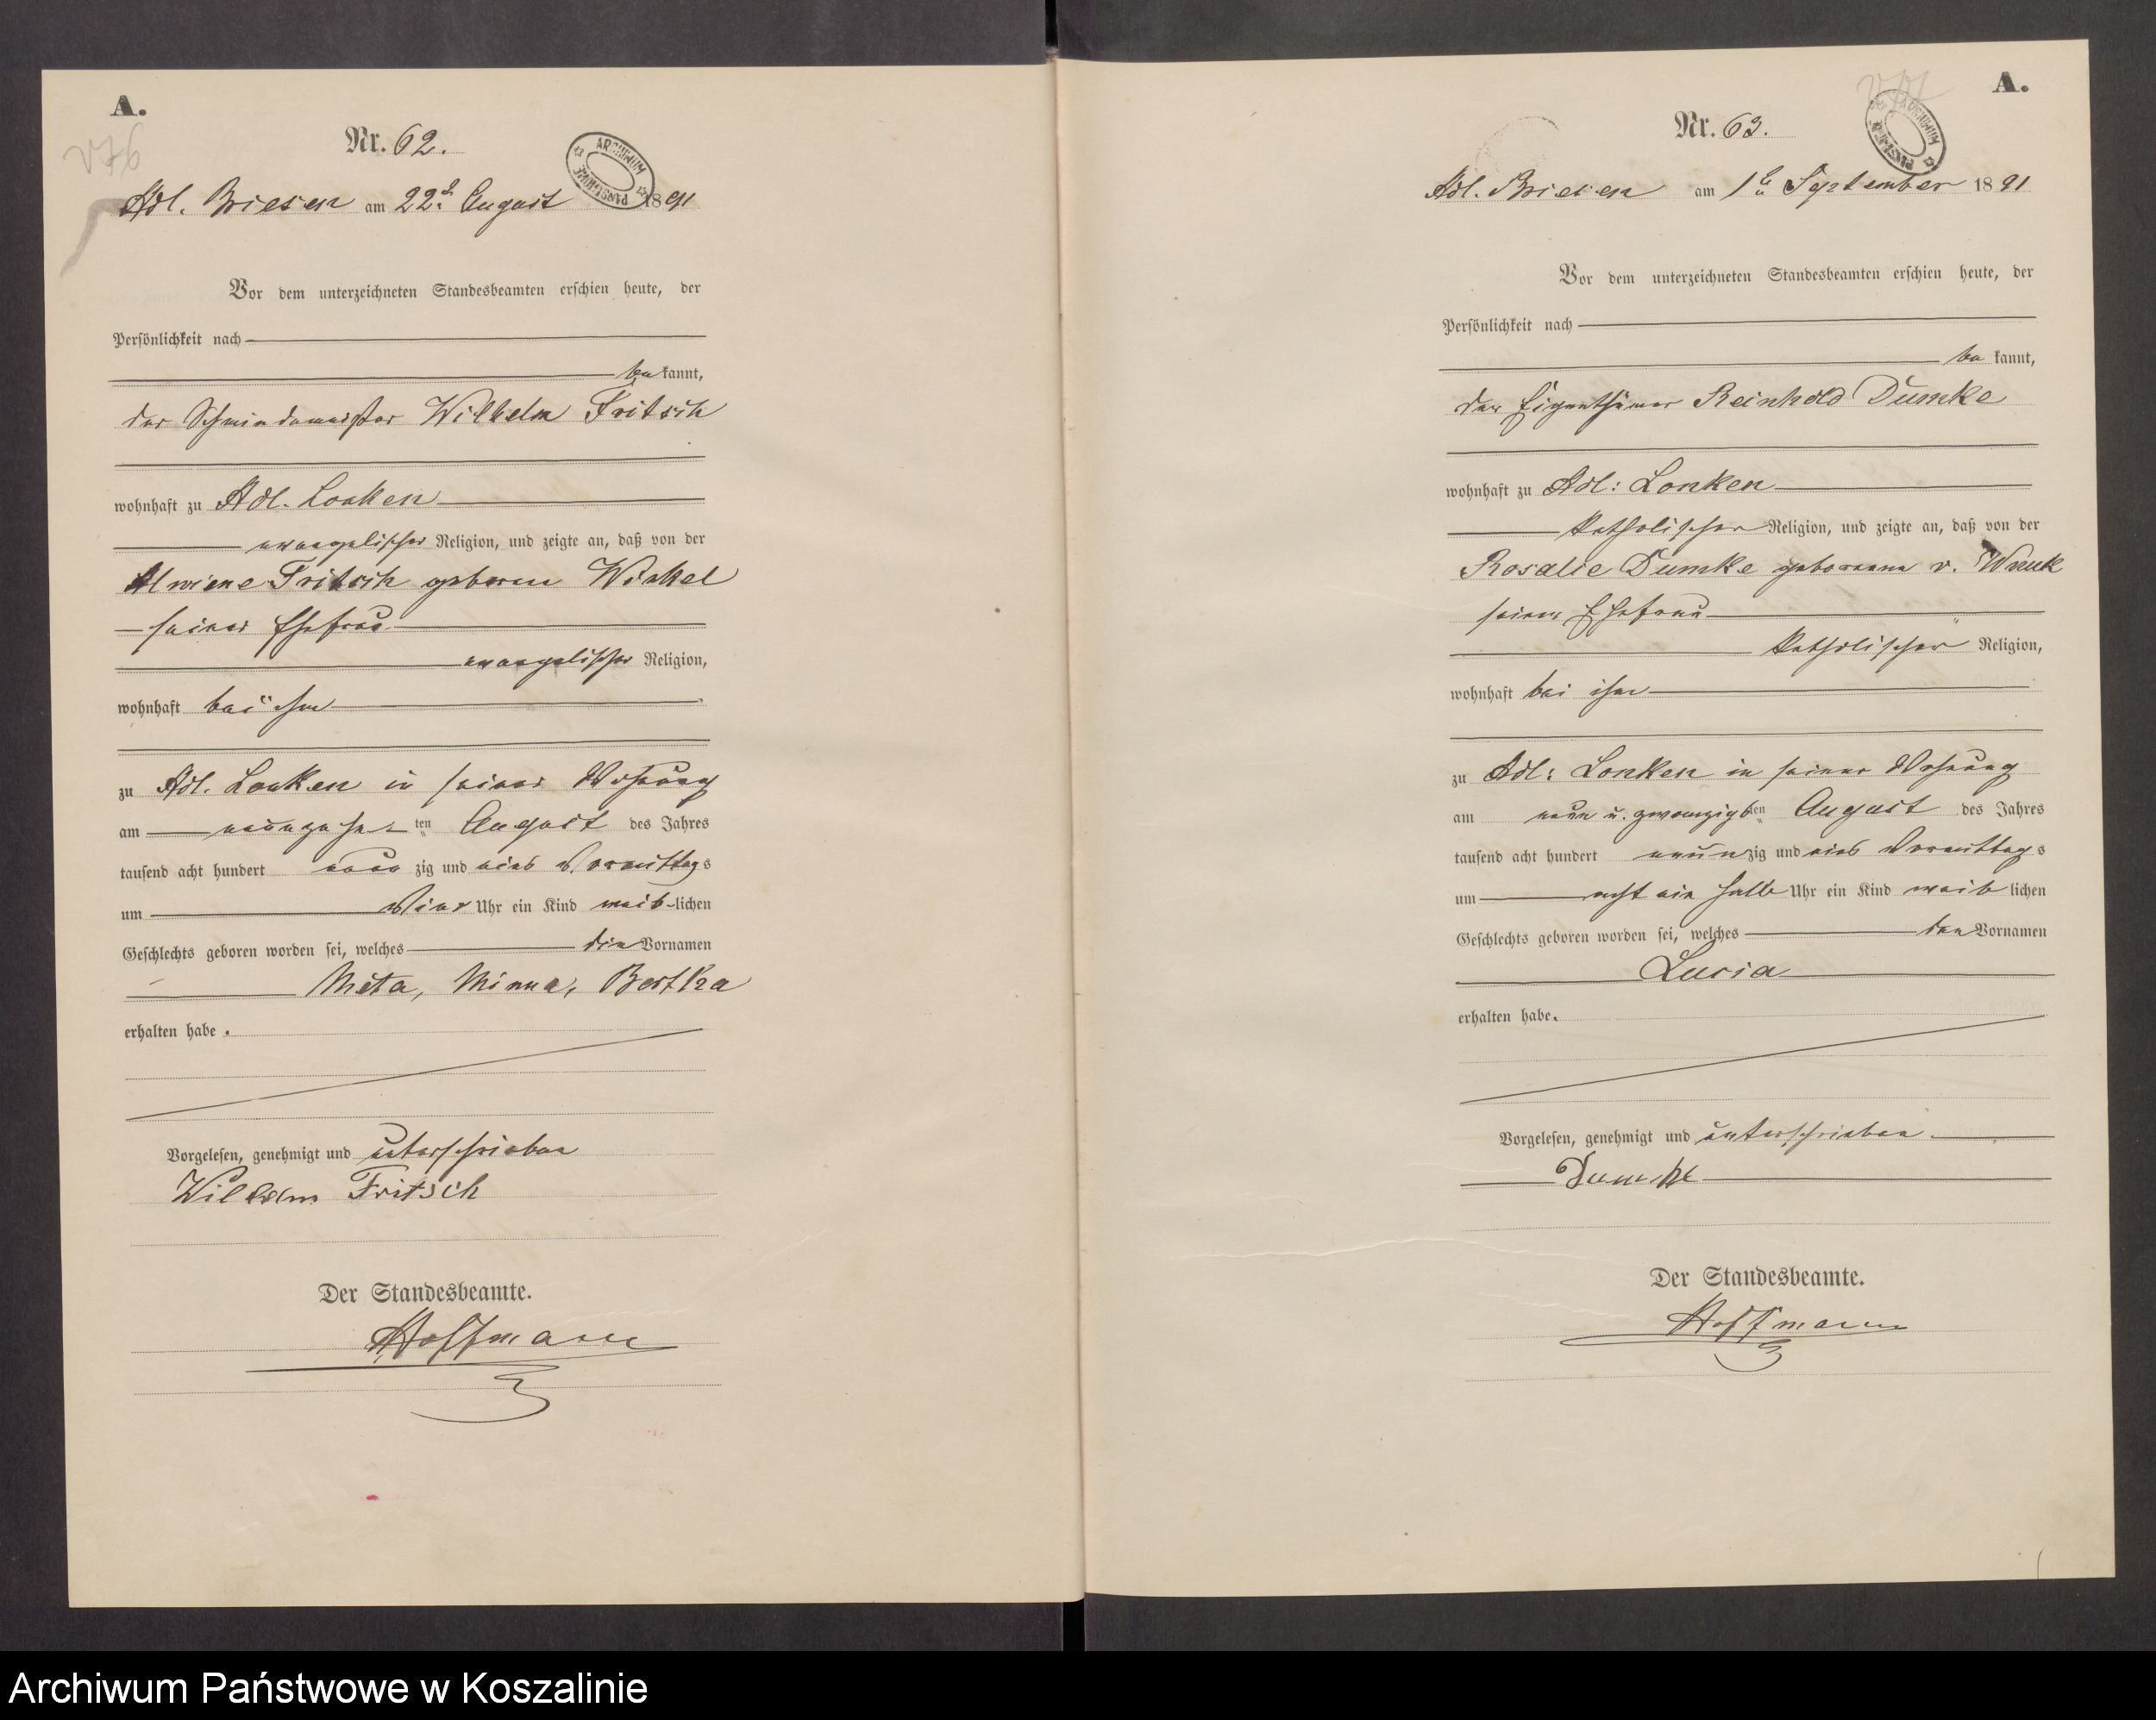 A.
Nr. 62.
ARCHIWUM PAŃSTWOWE
Adl. Briesen am 22t. August 1891
Vor dem unterzeichneten Standesbeamten erschien heute, der
Persönlichkeit nach
be kannt,
der Schmiedemeister Wilhelm Fritsch
wohnhaft zu Adl. Lonken
evangelischer Religion, und zeigte an, daß von der
Alwiene Fritsch geboren Winkel
seiner Ehefrau
evangelischer Religion,
wohnhaft bei ihm
zu Adl. Lonken in seiner Wohnung
am neunzehnten August des Jahres
tausend acht hundert neun zig und eins Vormittags
um Uhr ein Kind weib lichen
Geschlechts geboren worden sei, welches die Vornamen
Meta, Minna, Bertha
erhalten habe.
Vorgelesen, genehmigt und unterschrieben
Wilhelm Fritsch
Der Standesbeamte.
Hoffmann
A.
Nr. 63.
ARCHIWUM PAŃSTWOWE
Adl. Briesen am 1t. September 1891
Vor dem unterzeichneten Standesbeamten erschien heute, der
Persönlichkeit nach
be kannt,
der Eigenthümer Reinhold Dumke
wohnhaft zu Adl: Lonken
katholischer Religion, und zeigte an, daß von der
Rosalie Dumke geborenen v. Wnuk
seiner Ehefrau
katholischer Religion,
wohnhaft bei ihm
zu Adl: Lonken in seiner Wohnung
am neun u. zwanzigsten August des Jahres
tausend acht hundert neun zig und eins Vormittags
um acht ein halb Uhr ein Kind weib lichen
Geschlechts geboren worden sei, welches den Vornamen
Lucia
erhalten habe.
Vorgelesen, genehmigt und unterschrieben.
Dumke
Der Standesbeamte.
Hoffmann
Archiwum Państwowe w Koszalinie